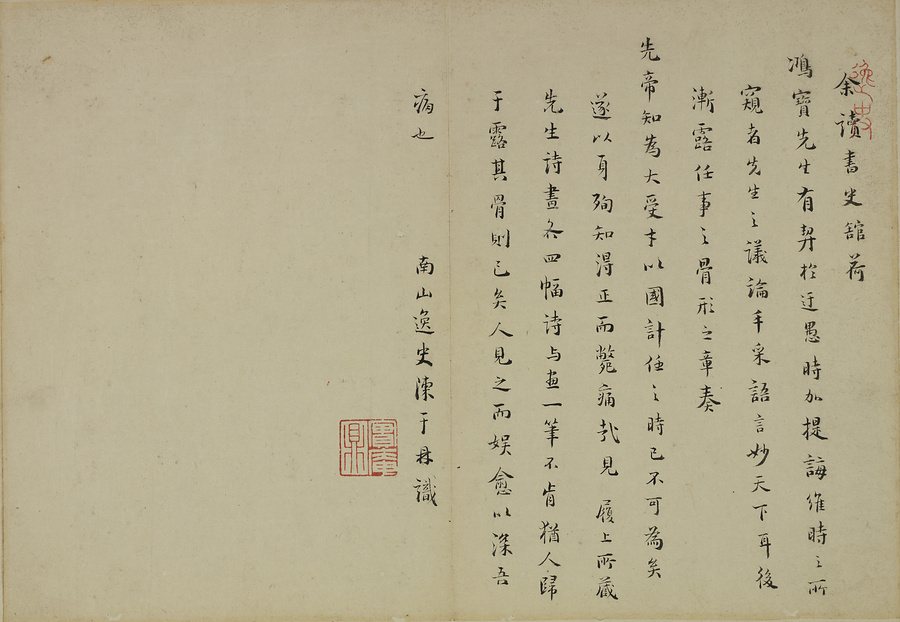 余讀書史舘荷
鴻寶先生有契於迂愚時加提誨維時之所
窺者先生之議論丰采語言妙天下耳後
漸露任事之骨形之章奏
先帝知為大受才以國計任之時已不可為矣
遂以身殉知得正而斃痛哉見履上所藏
先生詩畫各四幅詩与畫一筆不肯猶人歸
于露其骨則已矣人見之而娱愈以深吾
病也
南山逸史陳于鼎識
逸史